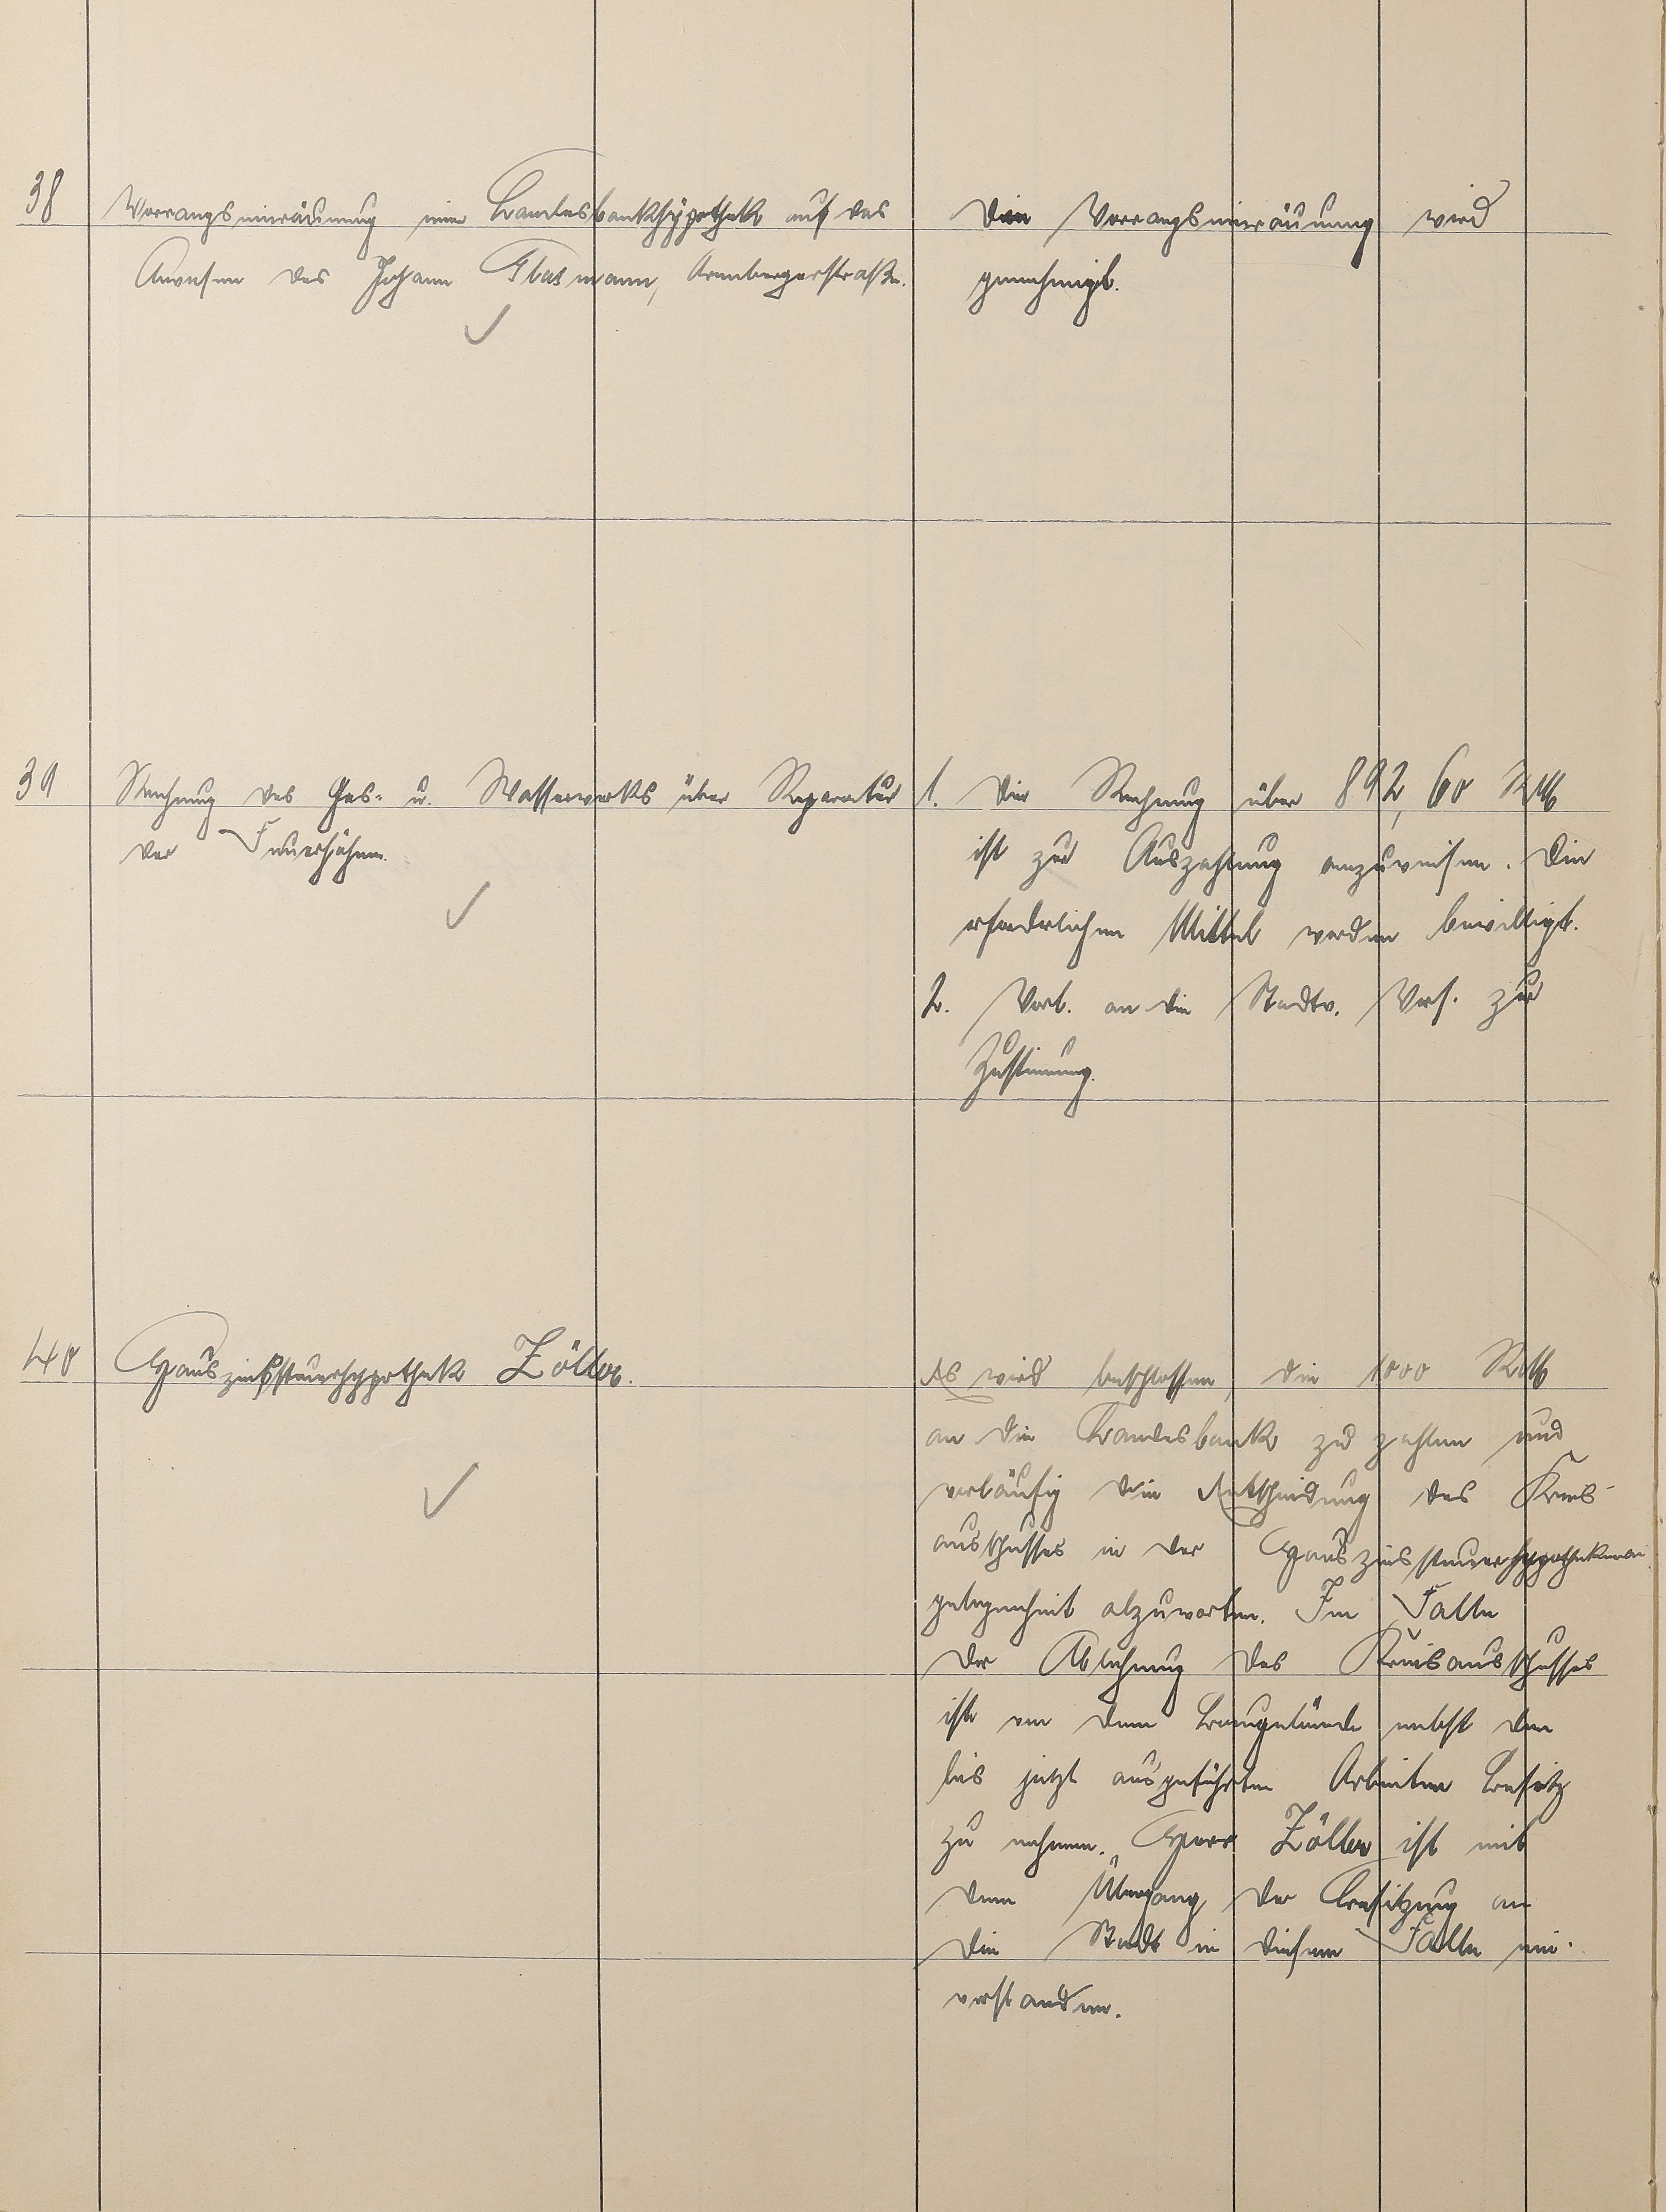 38
Vorrangseinräumung einer Landesbankhypothek auf das
Anwesen des Johann Glasmann, Arenbergerstraße.
Die Vorrangseinräumung wird
genehmigt.
39
Rechnung des Gas- u. Wasserwerks über Reparatur
der Feuerhähne.
1. Die Rechnung über 892,60 RM
ist zur Auszahlung anzuweisen. Die
erforderlichen Mittel werden bewilligt.
2. Vorl. an die Stadtv. Vers. zur
Zustimmung.
40
Hauszinssteuerhypothek Zöller.
Es wird beschlossen, die 1000 RM
an die Landesbank zu zahlen und
vorläufig die Entscheidung des Kreis-
ausschusses in der Hauszinssteuerhypothekenan
gelegenheit abzuwarten. Im Falle
der Ablehnung des Kreisausschusses
ist von dem Baugelände nebst den
bis jetzt ausgeführten Arbeiten Besitz
zu nehmen. Herr Zöller ist mit
dem Übergang der Besitzung an
die Stadt in diesem Falle ein-
verstanden.